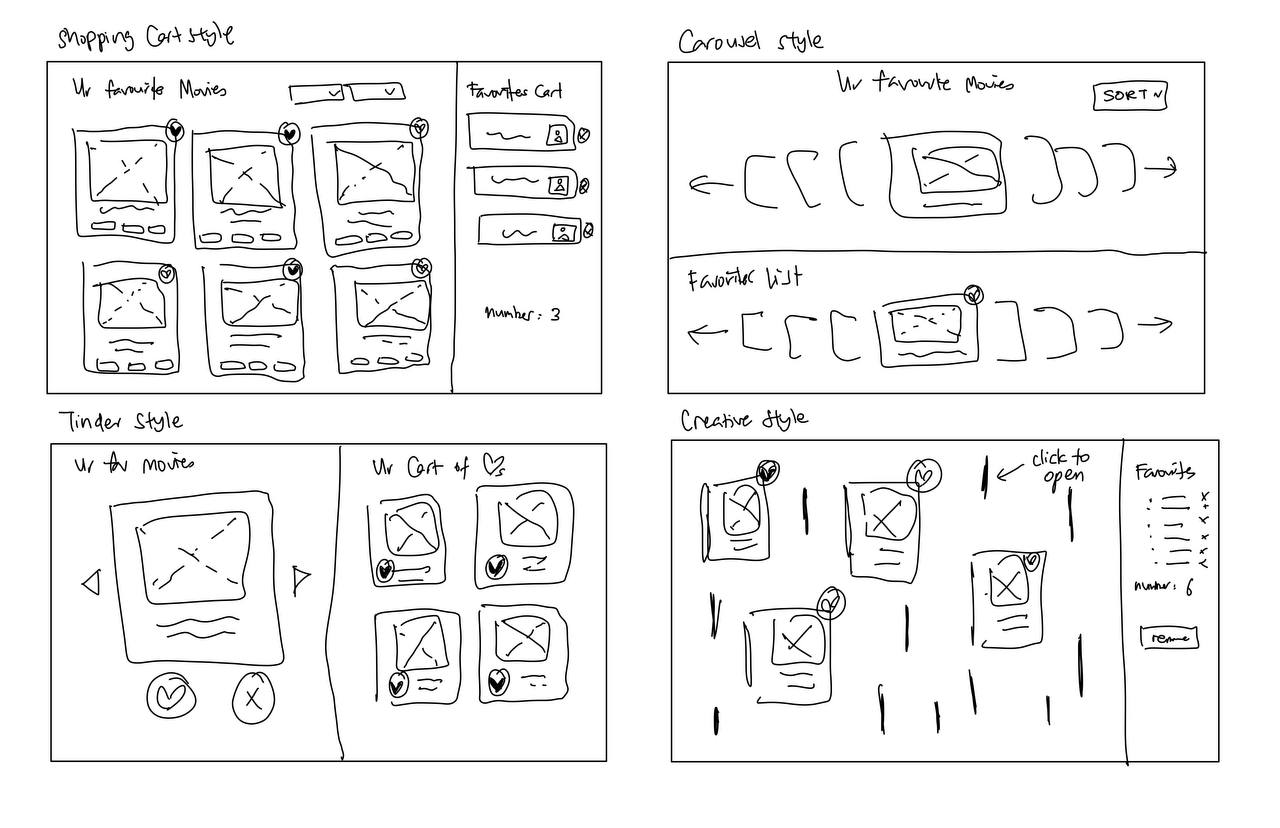 Shopping Cart Style
Ur favourite Movies
Favorites Cart
number: 3
Carousel style
Ur favourite Movies
SORT
Favorites LIST
Tinder Style
Ur fav movies
Ur Cart of ♡s
Creative Style
click to
open
Favourites
number: 6